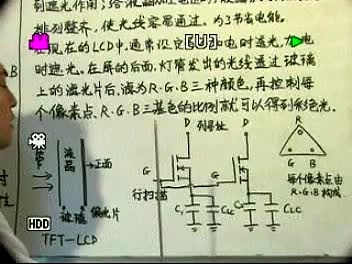 到遮光作用；给液晶加上电压时
排列整齐，使光线容易通过。为了节省电能。
在现在的LCD中，通常设定 加电时透光，
时遮光。在屏的后面，灯管发出的光线通过玻璃
上的滤光片后，滤为R、G、B三种颜色，再控制每
个像素点，R、G、B三基色的比例就可以得到彩色光。
[U]
B
D
列寻址
D
R
G
B
液晶
正面
G
G
行扫描
每个像素点由
R、G、B构成
C₁
CLC
C₂
CLC
玻璃
偏光片
HDD
TFT-LCD
对
性